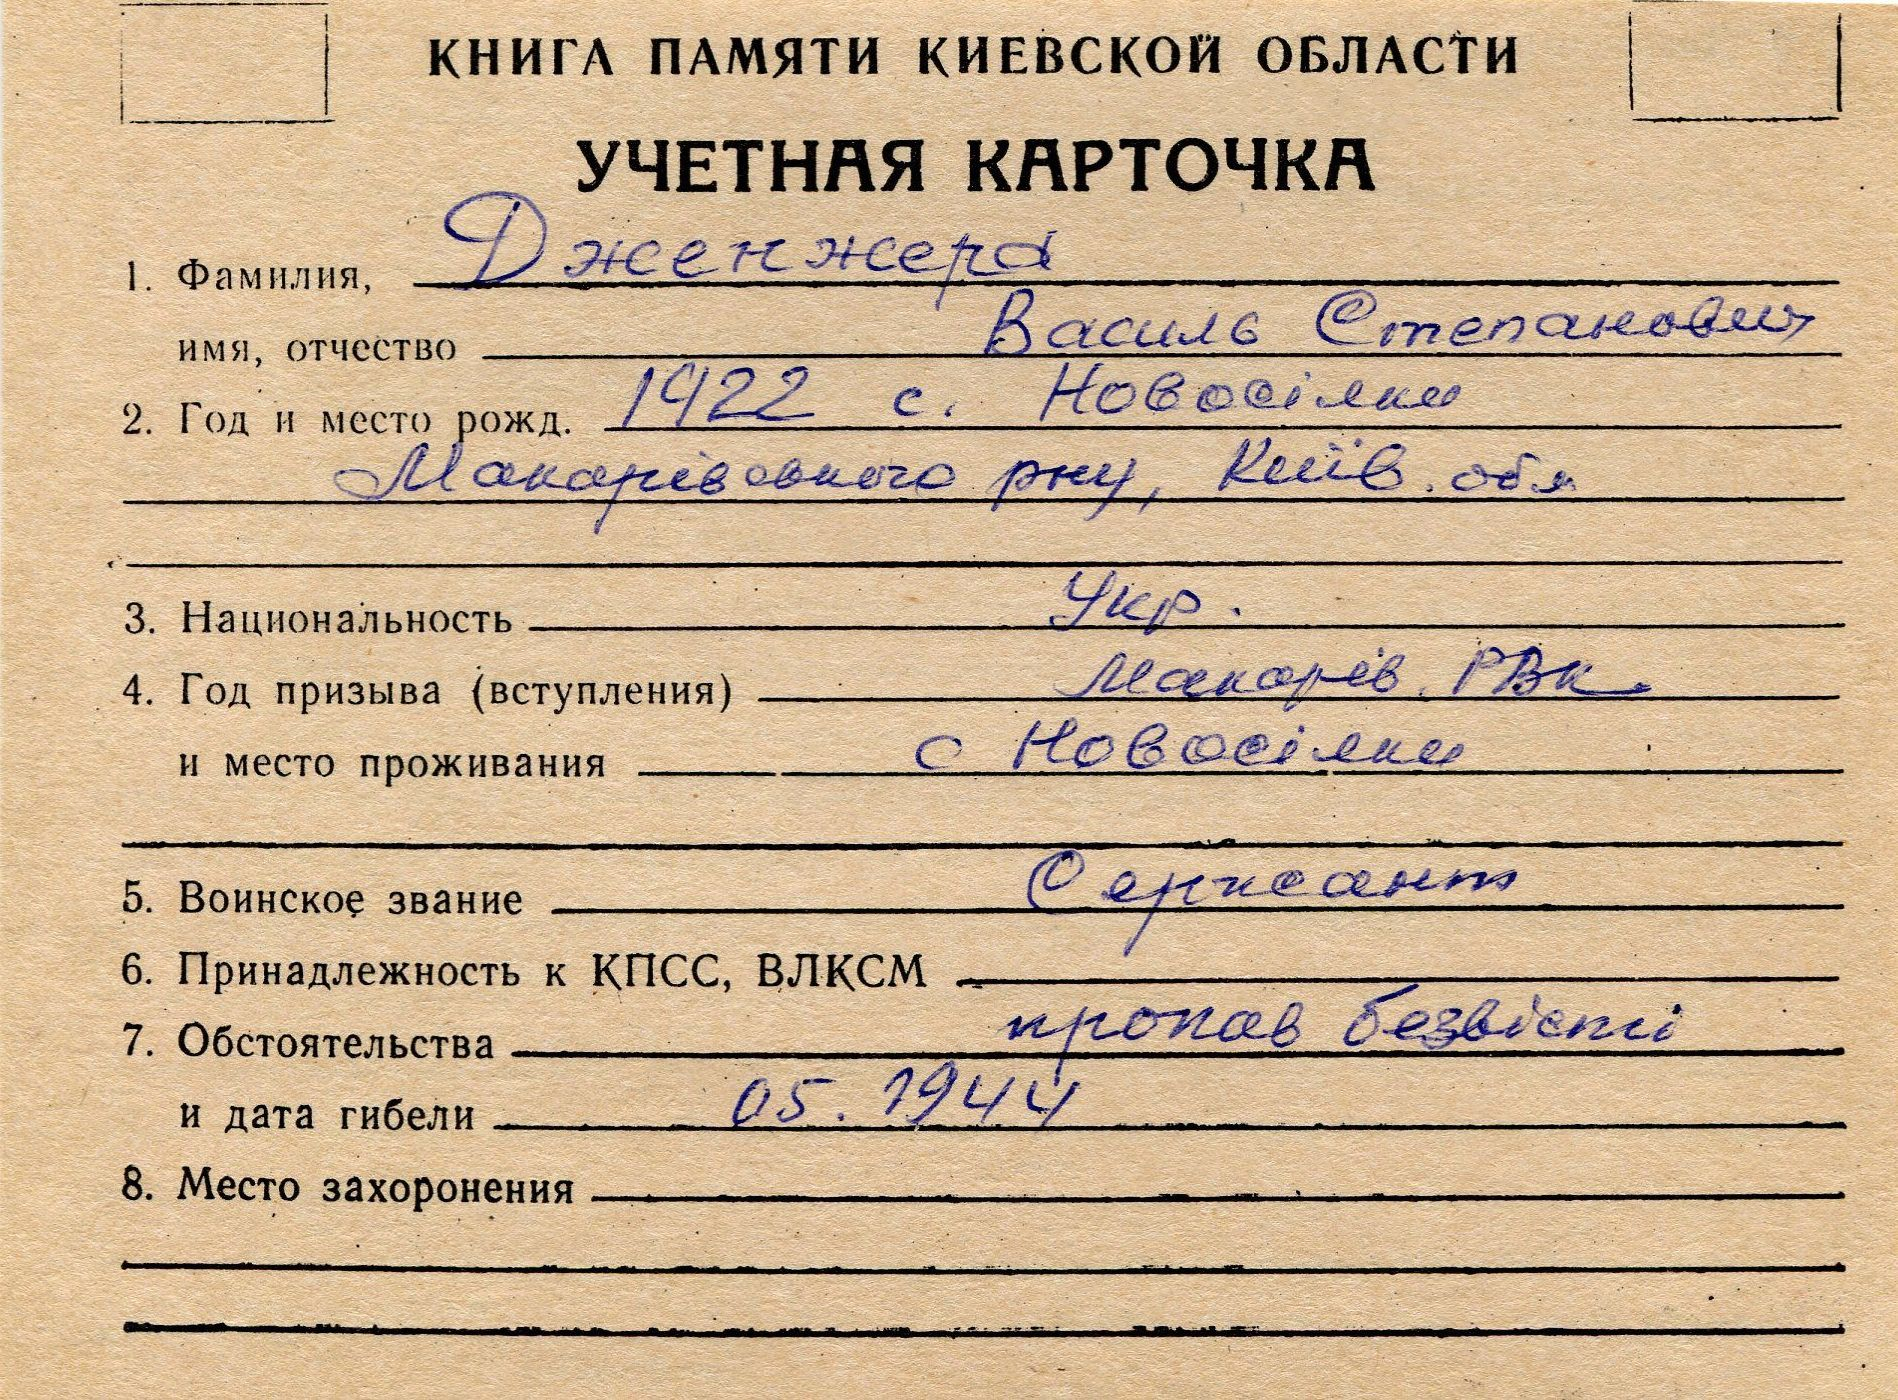 КНИГА ПАМЯТИ КИЕВСКОЙ ОБЛАСТИ
УЧЕТНАЯ КАРТОЧКА
1. Фамилия, Дженжера
имя, отчество Василь Степанович
2. Год и место рожд. 1922 с. Новосілки
Макарівського р-ну, Київ. обл
3. Национальность Укр.
4. Год призыва (вступления) Макарів. РВК
и место проживания с Новосілки
5. Воинское звание Сержант
6. Принадлежность к КПСС, ВЛКСМ
7. Обстоятельства пропав безвісті
и дата гибели 05.1944
8. Место захоронения